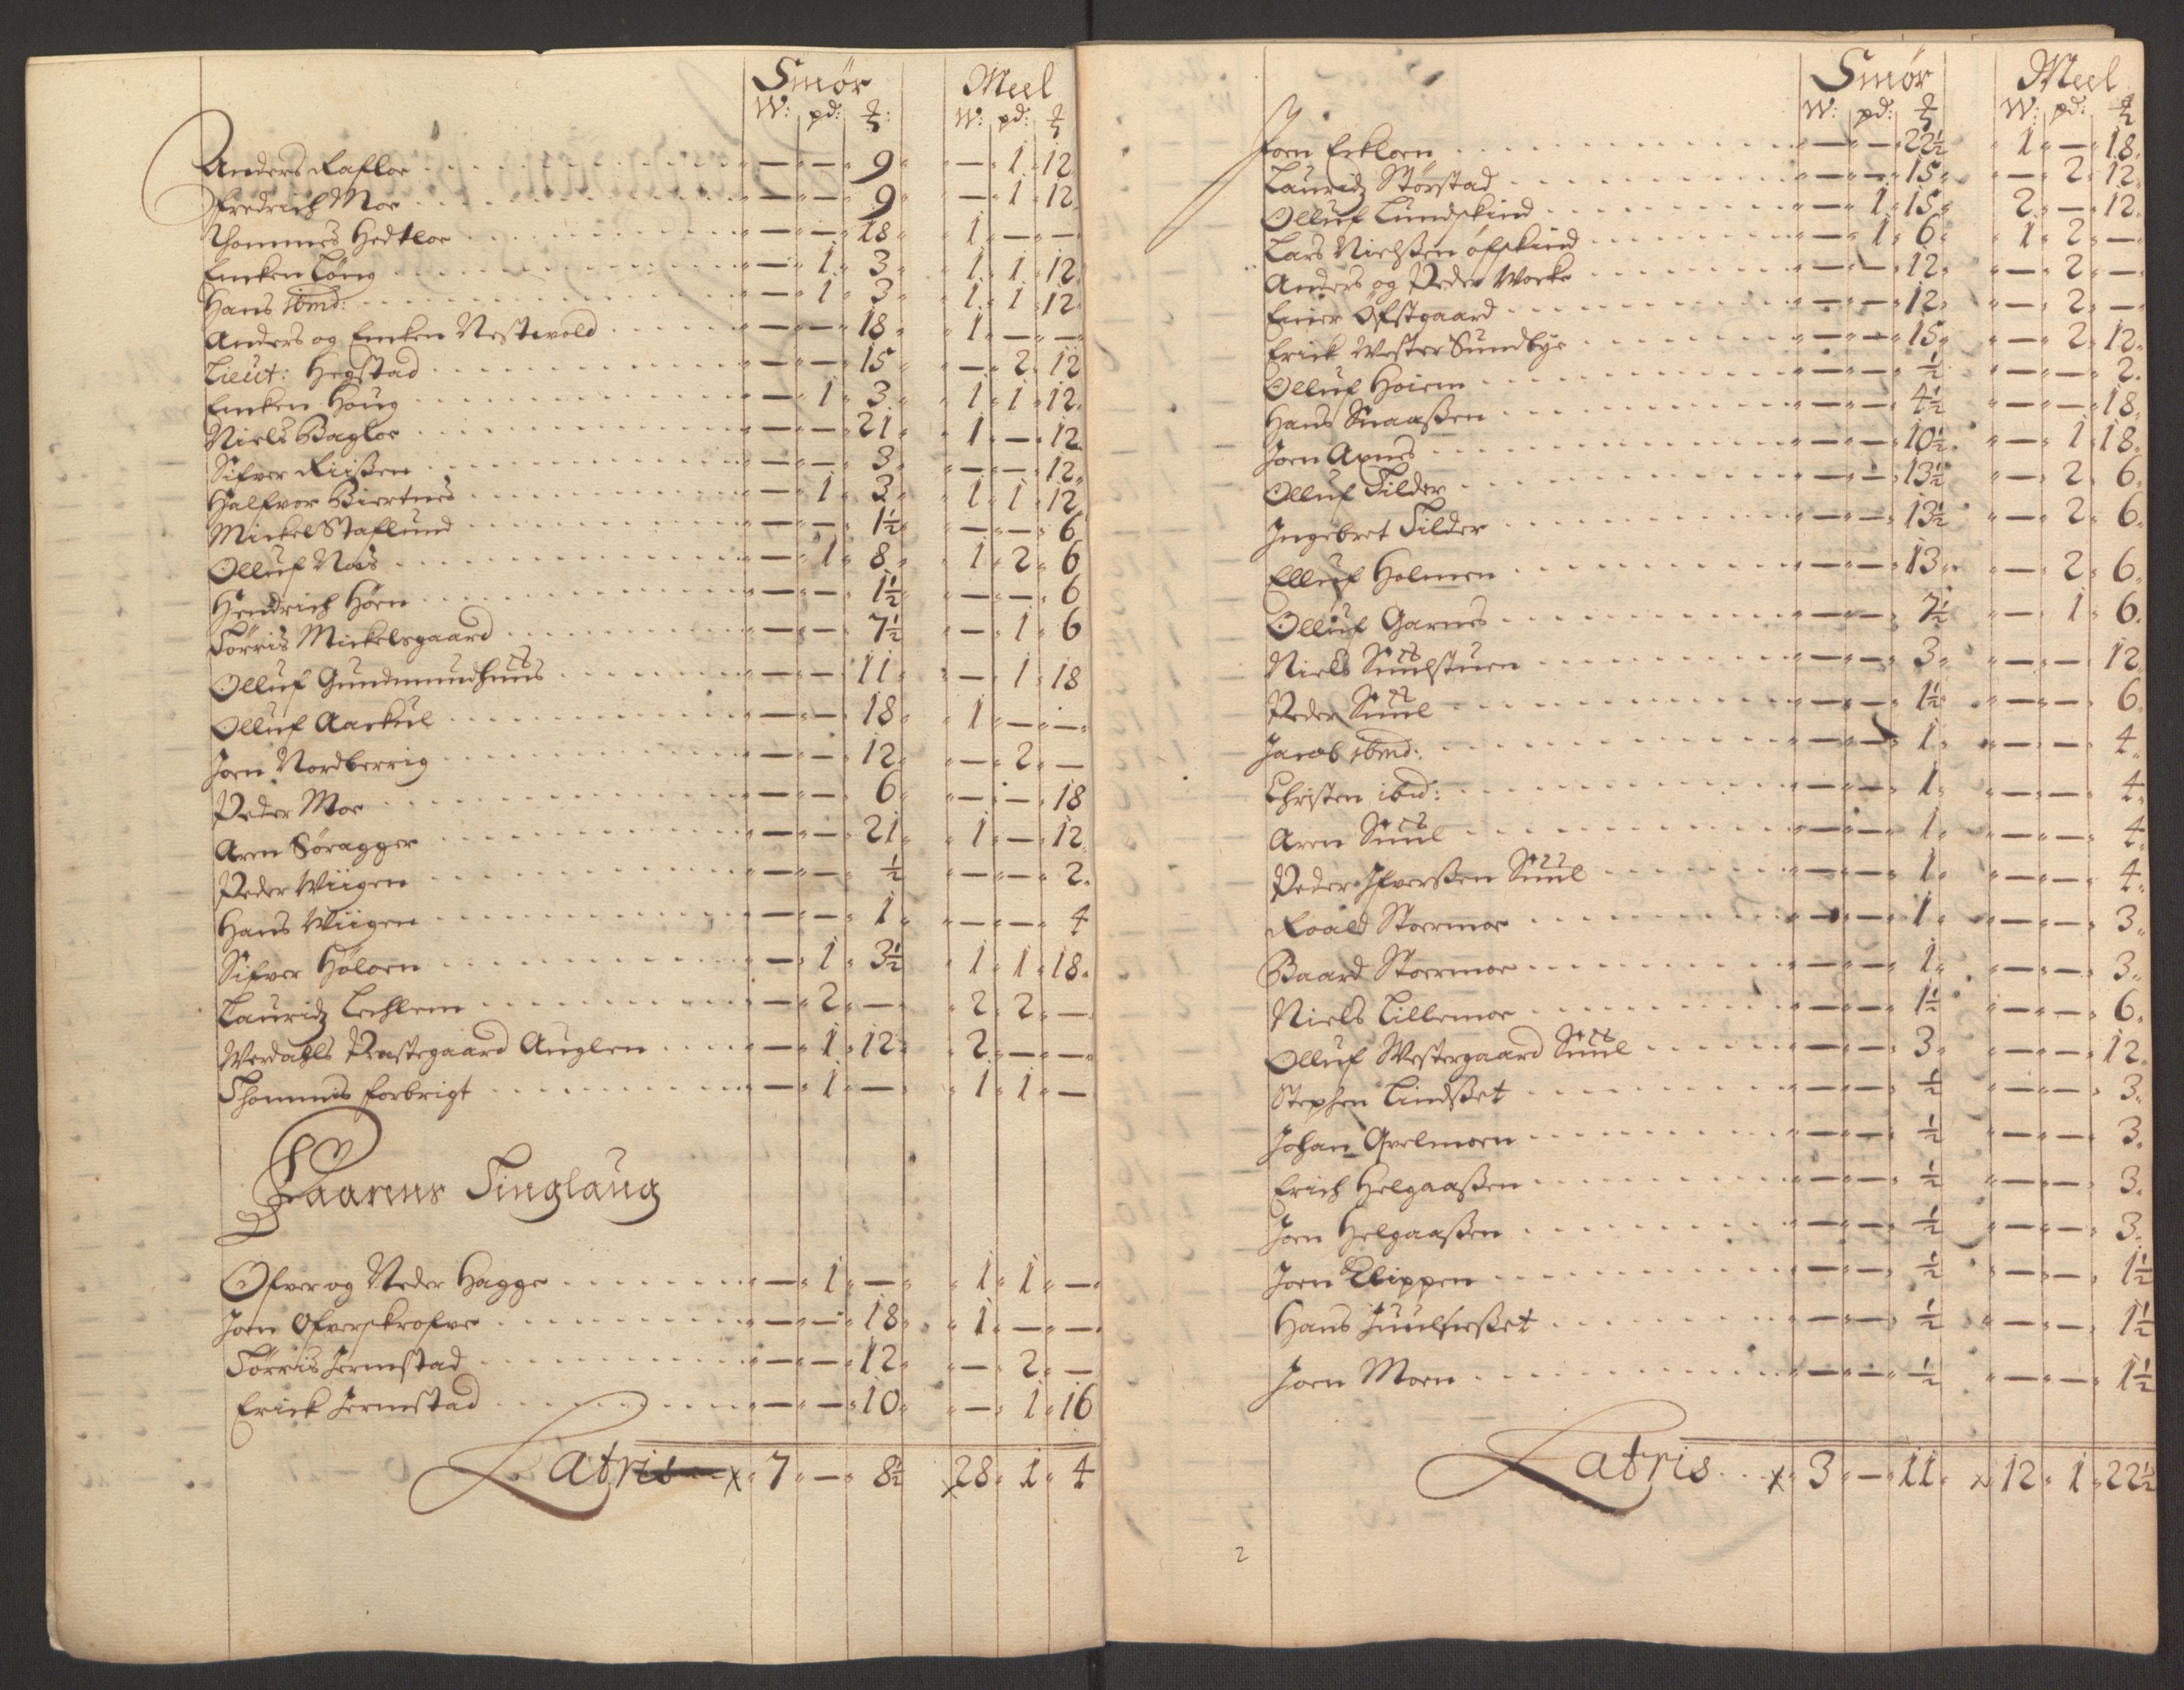 Smør Meel
W: pd: ℔: W: pd: ℔
Anders Rafloe — — 9 — 1 12
Fredrich Moe — — 9 — 1 12
Thommes Hedtloe — — 18 1 — —
Encken Löng — 1 3 1 1 12
Hans ibmd: — 1 3 1 1 12
Anders og Encken Nestwold — — 18 1 — —
Lieut: Hegstad — — 15 — 2 12
Encken Houg — 1 3 1 1 12
Niels Bagloe — — 21 1 — 12
Sifver Riissen — — 3 — — 12
Halfvor Biertnes — 1 3 1 1 12
Mickel Staflund — — 1½ — — 6
Olluf Nes — 1 8 1 2 6
Hendrich Hoen — — 1½ — — 6
Törris Mickelsgaard — — 7½ — 1 6
Olluf Gundmundhuus — — 11 — 1 18
Olluf Aaekul — — 18 1 — —
Joen Nordberrig — — 12 — 2 —
Peder Moe — — 6 — — 18
Aren Söragger — — 21 1 — 12
Peder Wiigen — — ½ — — 2
Hans Wiigen — — 1 — — 4
Sifver Holoen — 1 3½ 1 1 18
Lauridz Lechlem — 2 — 2 2 —
Werdahls Prestegaard Auglen — 1 12 2 — —
Thommes Forbrigt — 1 — 1 1 —
Skaarens Tinglaug
Ofver og Neder Hagge — 1 — 1 1 —
Joen Ofverskrofve — — 18 1 — —
Törris Jermstad — — 12 — 2 —
Erick Jermstad — — 10 — 1 16
Latris 7 — 8½ 28 1 4
Smør Meel
W: pd: ℔ W: pd: ℔
Joen Eckloen — — 22½ 1 — 18
Lauridz Störstad — — 15 — 2 12
Olluf Lundskind — 1 15 2 — 12
Lars Nielssen öfskind — 1 6 1 2 —
Anders og Peder Worke — — 12 — 2 —
Einer Öfstgaard — — 12 — 2 —
Erick Wester Sundbye — — 15 — 2 12
Olluf Hoiem — — ½ — — 2
Hans Snaassen — — 4½ — — 18
Joen Axnes — — 10½ — 1 18
Olluf Tilder — — 13½ — 2 6
Ingebret Tilder — — 13½ — 2 6
Elluf Holmen — — 13 — 2 6
Olluf Garnes — — 7½ — 1 6
Niels Suulstuen — — 3 — — 12
Peder Suul — — 1½ — — 6
Jacob ibmd: — — 1 — — 4
Christen ibid: — — 1 — — 4
Aren Suul — — 1 — — 4
Peder Ifverssen Suul — — 1 — — 4
Roald Stoermoe — — 1 — — 3
Baard Stoermoe — — 1 — — 3
Niels Lillemoe — — 1½ — — 6
Olluf Westergaard Suul — — 3 — — 12
Stephen Lindsset — — ½ — — 3
Johan Qvelmoen — — ½ — — 3
Erich Helgaassen — — ½ — — 3
Joen Helgaassen — — ½ — — 3
Joen Klippen — — ½ — — 1½
Hans Juulnesset — — ½ — — 1½
Joen Moen — — ½ — — 1½
Latris 3 — 11 12 1 22½
2